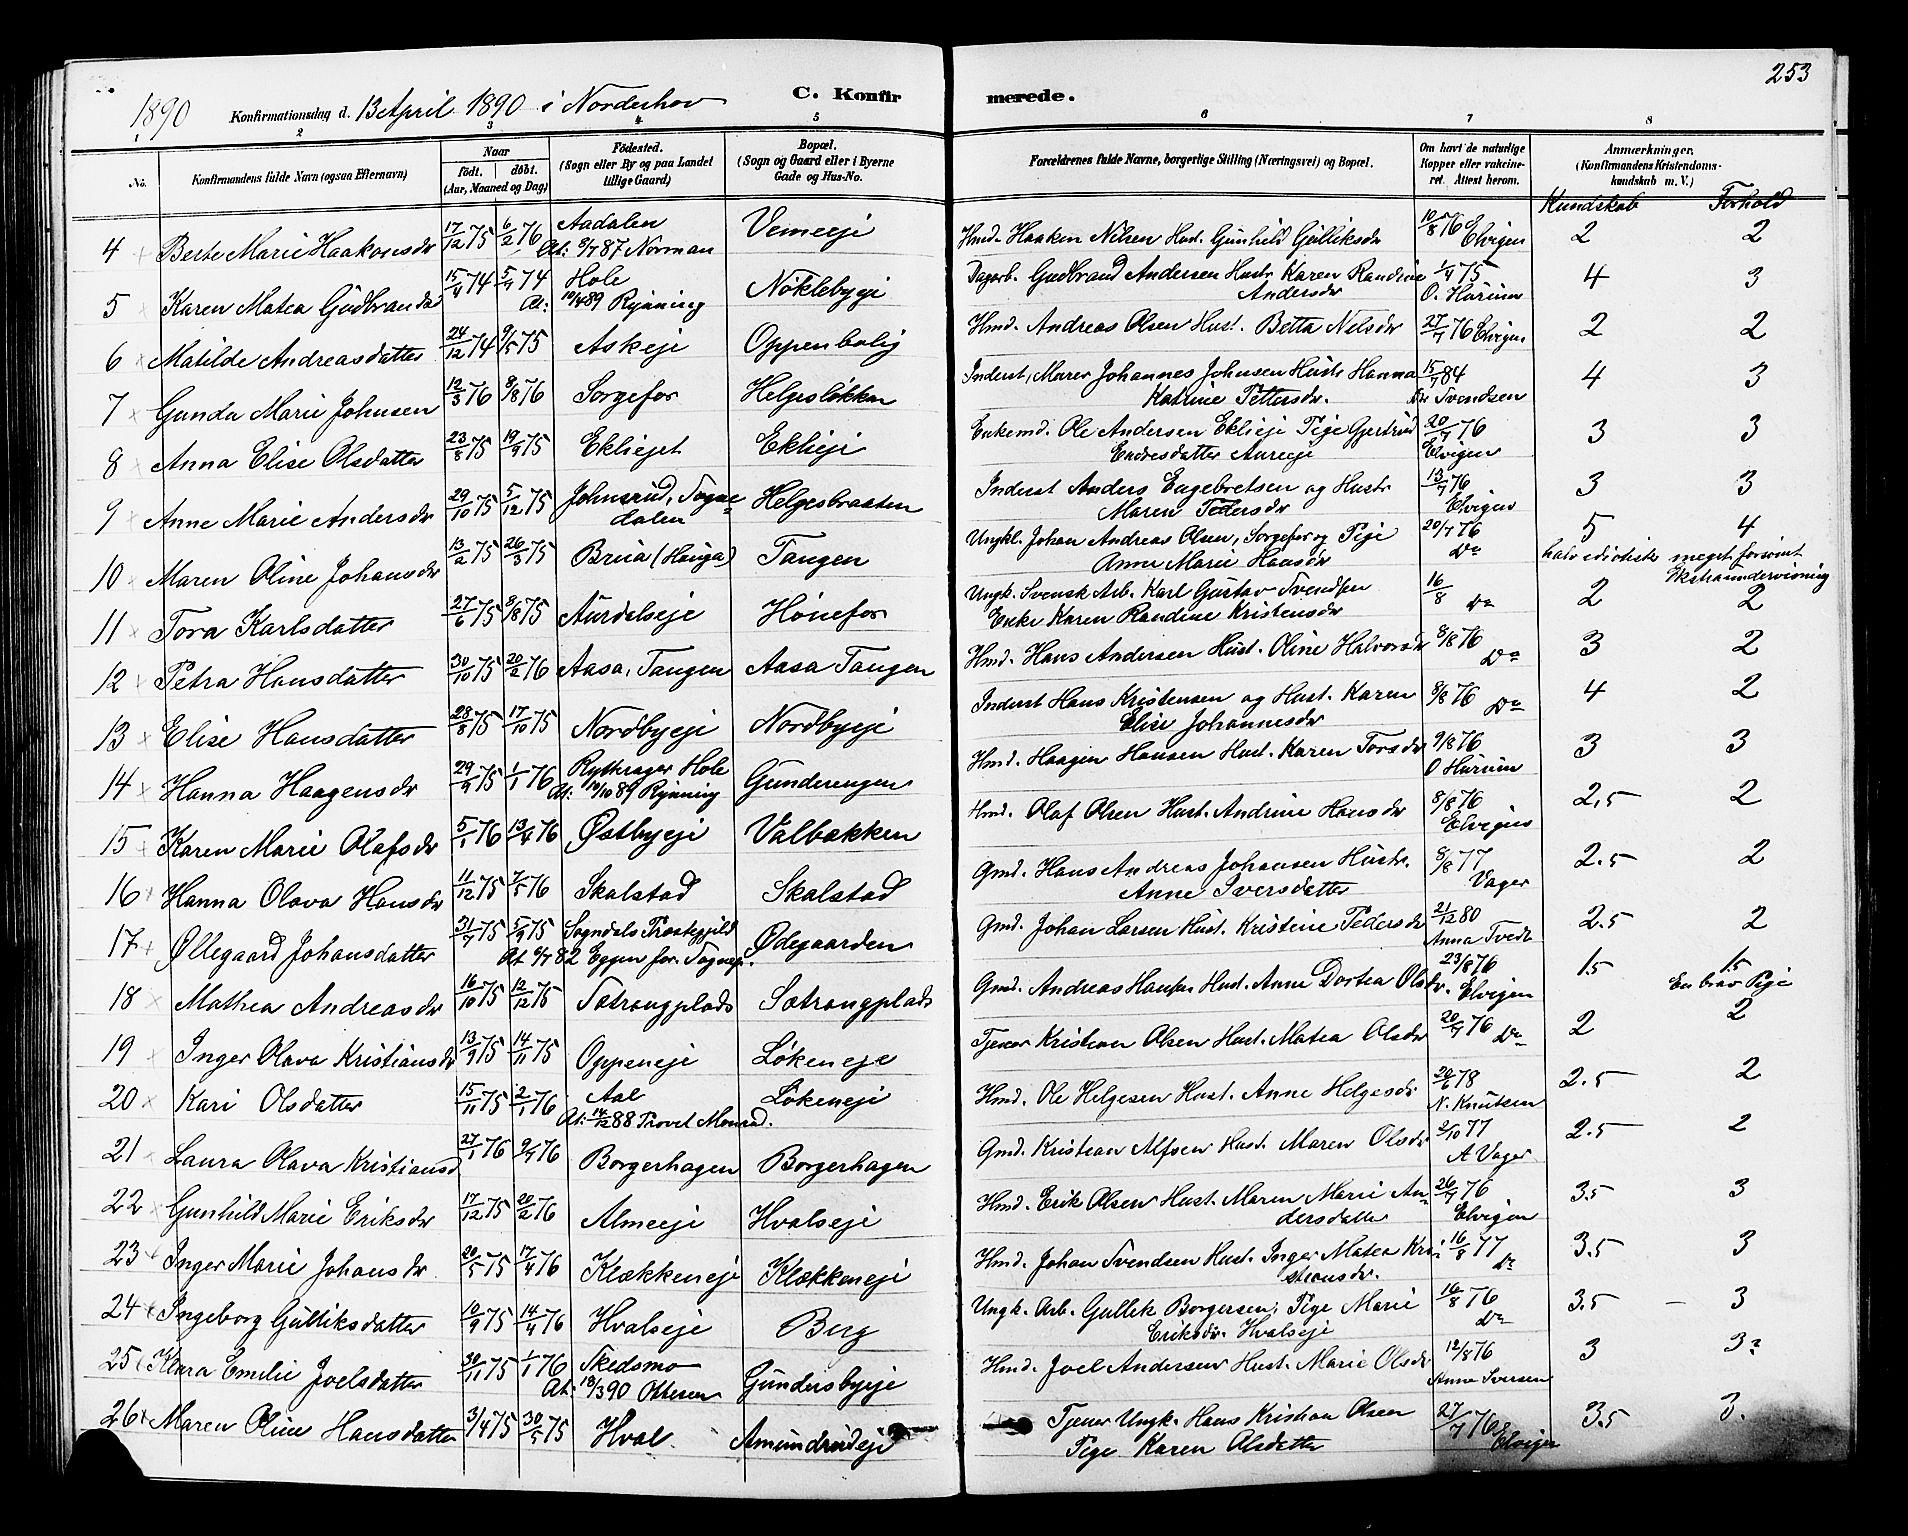 253
1890 Konfirmationsdag d. 13 April 1890 i Norderhov C. Konfirmerede.
1 2 3 4 5 6 7 8
No. Konfirmandens fulde Navn (ogsaa Efternavn) Naar født. døbt. (Aar, Maaned og Dag) Fødested. (Sogn eller By og paa Landet tillige Gaard) Bopæl. (Sogn og Gaard eller i Byerne Gade og Hus-No. Forældrenes fulde Navne, borgerlige Stilling (Næringsvei) og Bopæl. Om havt de naturlige Kopper eller vakcineret. Attest herom. Anmærkninger. (Konfirmandens Kristendomskundskab m. V.)
Kundskab Forhold
4 Berte Marie Haakonsdr 17/12 75 6/2 76 Aadalen At: 9/7 87 Norman Vemeeje Hmd. Haaken Nilsen Hust. Gunhild Gulliksdr 10/8 76 Elvigen 2 2
5 Karen Matea Gudbrandsd 15/4 74 5/7 74 Hole At: 10/4 89 Rynning Nöklebyeje Dagarb. Gudbrand Andersen Hustr Karen Randine Andersdr 1/4 75 O. Hurum 4 3
6 Matilde Andreasdatter 24/12 74 9/5 75 Askeje Oppenbolig Hmd. Andreas Olsen Hust. Betta Nelsdr 27/7 76 Elvigen 2 2
7 Gunda Marie Johnsen 12/3 76 8/8 76 Sorgefos Helgesløkken Inderst, Murer Johannes Johnsen Hustr Hanna Katrine Pettersdr. 15/7 84 Dr Svendsen 4 3
8 Anna Elise Olsdatter 23/8 75 19/9 75 Ekliejet Eklieje Enkemd. Ole Andersen Eklieje Pige Gjertrud Endresdatter Aureeje 20/7 76 Elvigen 3 3
9 Anne Marie Andersdr 29/10 75 5/12 75 Johnsrud, Sognedalen Helgesbraaten Inderst Anders Engebretsen og Hustr Maren Pedersdr 13/7 76 Elvigen 3 3
10 Maren Oline Johansdr 13/2 75 26/3 75 Brua (Houga) Tangen Ungkl. Johan Andreas Olsen, Sorgefos og Pige Anne Marie Hansdr 20/7 76 Do 5 4 halv idiotisk meget forsømt Ekstraundervisning
11 Tora Karlsdatter 27/6 75 8/8 75 Aurdalseje Hönefos Ungk. Svensk Arb. Karl Gustav Svendsen Enke Karen Randine Kristensdr 16/8 Do 2 2
12 Petra Hansdatter 30/10 75 20/2 76 Aasa, Tangen Aasa Tangen Hmd. Hans Andersen Hust. Oline Halvorsdr 8/8 76 Do 3 2
13 Elise Hansdatter 28/8 75 17/10 75 Nordbyeje Nordbyeje Inderst Hans Kristensen og Hust. Karen Elise Johannesdr 8/8 76 Do 4 2
14 Hanna Haagensdr 29/9 75 1/1 76 Rytterager Hole At: 10/10 89 Rynning Gunderengen Hmd. Haagen Hansen Hust. Karen Torsdr 9/8 76 O Hurum 3 3
15 Karen Marie Olafsdr 5/1 76 13/4 76 Østbyeje Valbækken Hmd. Olaf Olsen Hust. Andrine Hansdr 8/8 76 Elvigen 2,5 2
16 Hanna Olava Hansdr 11/12 75 7/5 76 Skalstad Skalstad Gmd. Hans Andreas Johansen Hustr. Anne Iversdatter 8/8 77 Vager 2.5 2
17 Øllegaard Johansdatter 31/7 75 5/9 75 Sogndals Præstegjeld At 6/7 82 Eggen Ødegaarden Gmd. Johan Larsen Hust. Kristine Pedersdr 21/12 80 Anna Tvedt 2.5 2
18 Mathea Andreasdr 16/10 75 12/12 75 Sætrangplads Sætrangplads Gmd. Andreas Hansen Hust. Anne Dortea Olsdr. 23/8 76 Elvigen 1.5 1.5 En brav Pige
19 Inger Olava Kristiansdr 13/9 75 14/11 75 Oppeneje Løkeneje Tjener Kristian Olsen Hust. Matea Olsdr 20/7 76 Do 2 2
20 Kari Olsdatter 15/11 75 2/1 76 Aal At: 14/12 88 Provst Monrad. Løkeneje Hmd. Ole Helgesen Hust. Anne Helgesdr 20/6 78 N. Knutsen 2.5 2
21 Laura Olava Kristiansd 27/1 76 9/7 76 Borgerhagen Borgerhagen Gmd. Kristian Alfsen Hust. Maren Olsdr 2/10 77 A Vager 2.5 2
22 Gunhild Marie Eriksdr 17/12 75 20/2 76 Almeeje Hvalseje Hmd. Erik Olsen Hust. Maren Marie Andersdatter 26/7 76 Elvigen 3.5 3
23 Inger Marie Johansdr 20/5 75 17/4 76 Klækkeneje Klækkeneje Hmd. Johan Svendsen Hust. Inger Matea Kristiansdr. 16/8 77 Do 3.5 3
24 Ingeborg Gulliksdatter 10/9 75 14/4 76 Hvalseje Berg Ungk. Arb. Gullek Borgersen, Pige Marie Eriksdr. Hvalseje 16/8 76 Do 3.5 — 3
25 Klara Emilie Joelsdatter 30/11 75 1/1 76 Skedsmo At: 18/3 90 Ottesen Gundersbyeje Hmd. Joel Andersen Hust. Marie Olsdr 12/8 76 Anne Iversen 3 3
26 Maren Oline Hansdatter 3/4 75 30/5 75 Hval Amundrudeje Tjener Ungk. Hans Kristian Olsen Pige Karen Olsdatter 27/7 76 Elvigen 3.5 3.